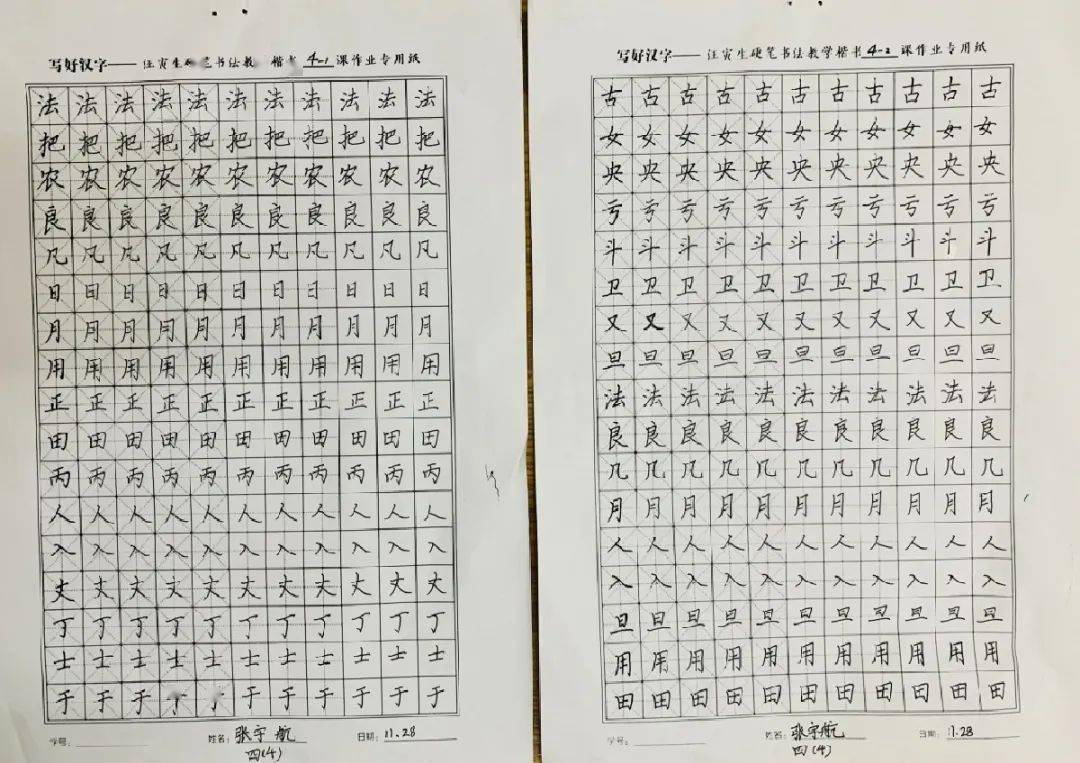 写好汉字——汪寅生硬笔书法教 楷书 4-1 课作业专用纸
法法法法法法法法法法法
把把把把把把把把把把把
农农农农农农农农农农农
良良良良良良良良良良良
凡凡凡凡凡凡凡凡凡凡凡
日日日日日日日日日日日
月月月月月月月月月月月
用用用用用用用用用用用
正正正正正正正正正正正
田田田田田田田田田田田
丙丙丙丙丙丙丙丙丙丙丙
人人人人人人人人人人人
入入入入入入入入入入入
丈丈丈丈丈丈丈丈丈丈丈
丁丁丁丁丁丁丁丁丁丁丁
士士士士士士士士士士士
于于于于于于于于于
学号: 姓名: 张宇航 日期: 11.28
四(4)
写好汉字——汪寅生硬笔书法教学楷书 4-2 课作业专用纸
古古古古古古古古古古古
女女女女女女女女女女女
央央央央央央央央央央央
亏亏亏亏亏亏亏亏亏亏亏
斗斗斗斗斗斗斗斗斗斗斗
卫卫卫卫卫卫卫卫卫卫卫
又又又又又又又又又又又
旦旦旦旦旦旦旦旦旦旦旦
法法法法法法法法法法法
良良良良良良良良良良良
几几几几几几几几几几几
月月月月月月月月月月月
人人人人人人人人人人人
入入入入入入入入入入入
旦旦旦旦旦旦旦旦旦旦旦
用用用用用用用用用用用
田田田田田田田田田田田
学号: 姓名: 张宇航 日期: 11.28
四(4)